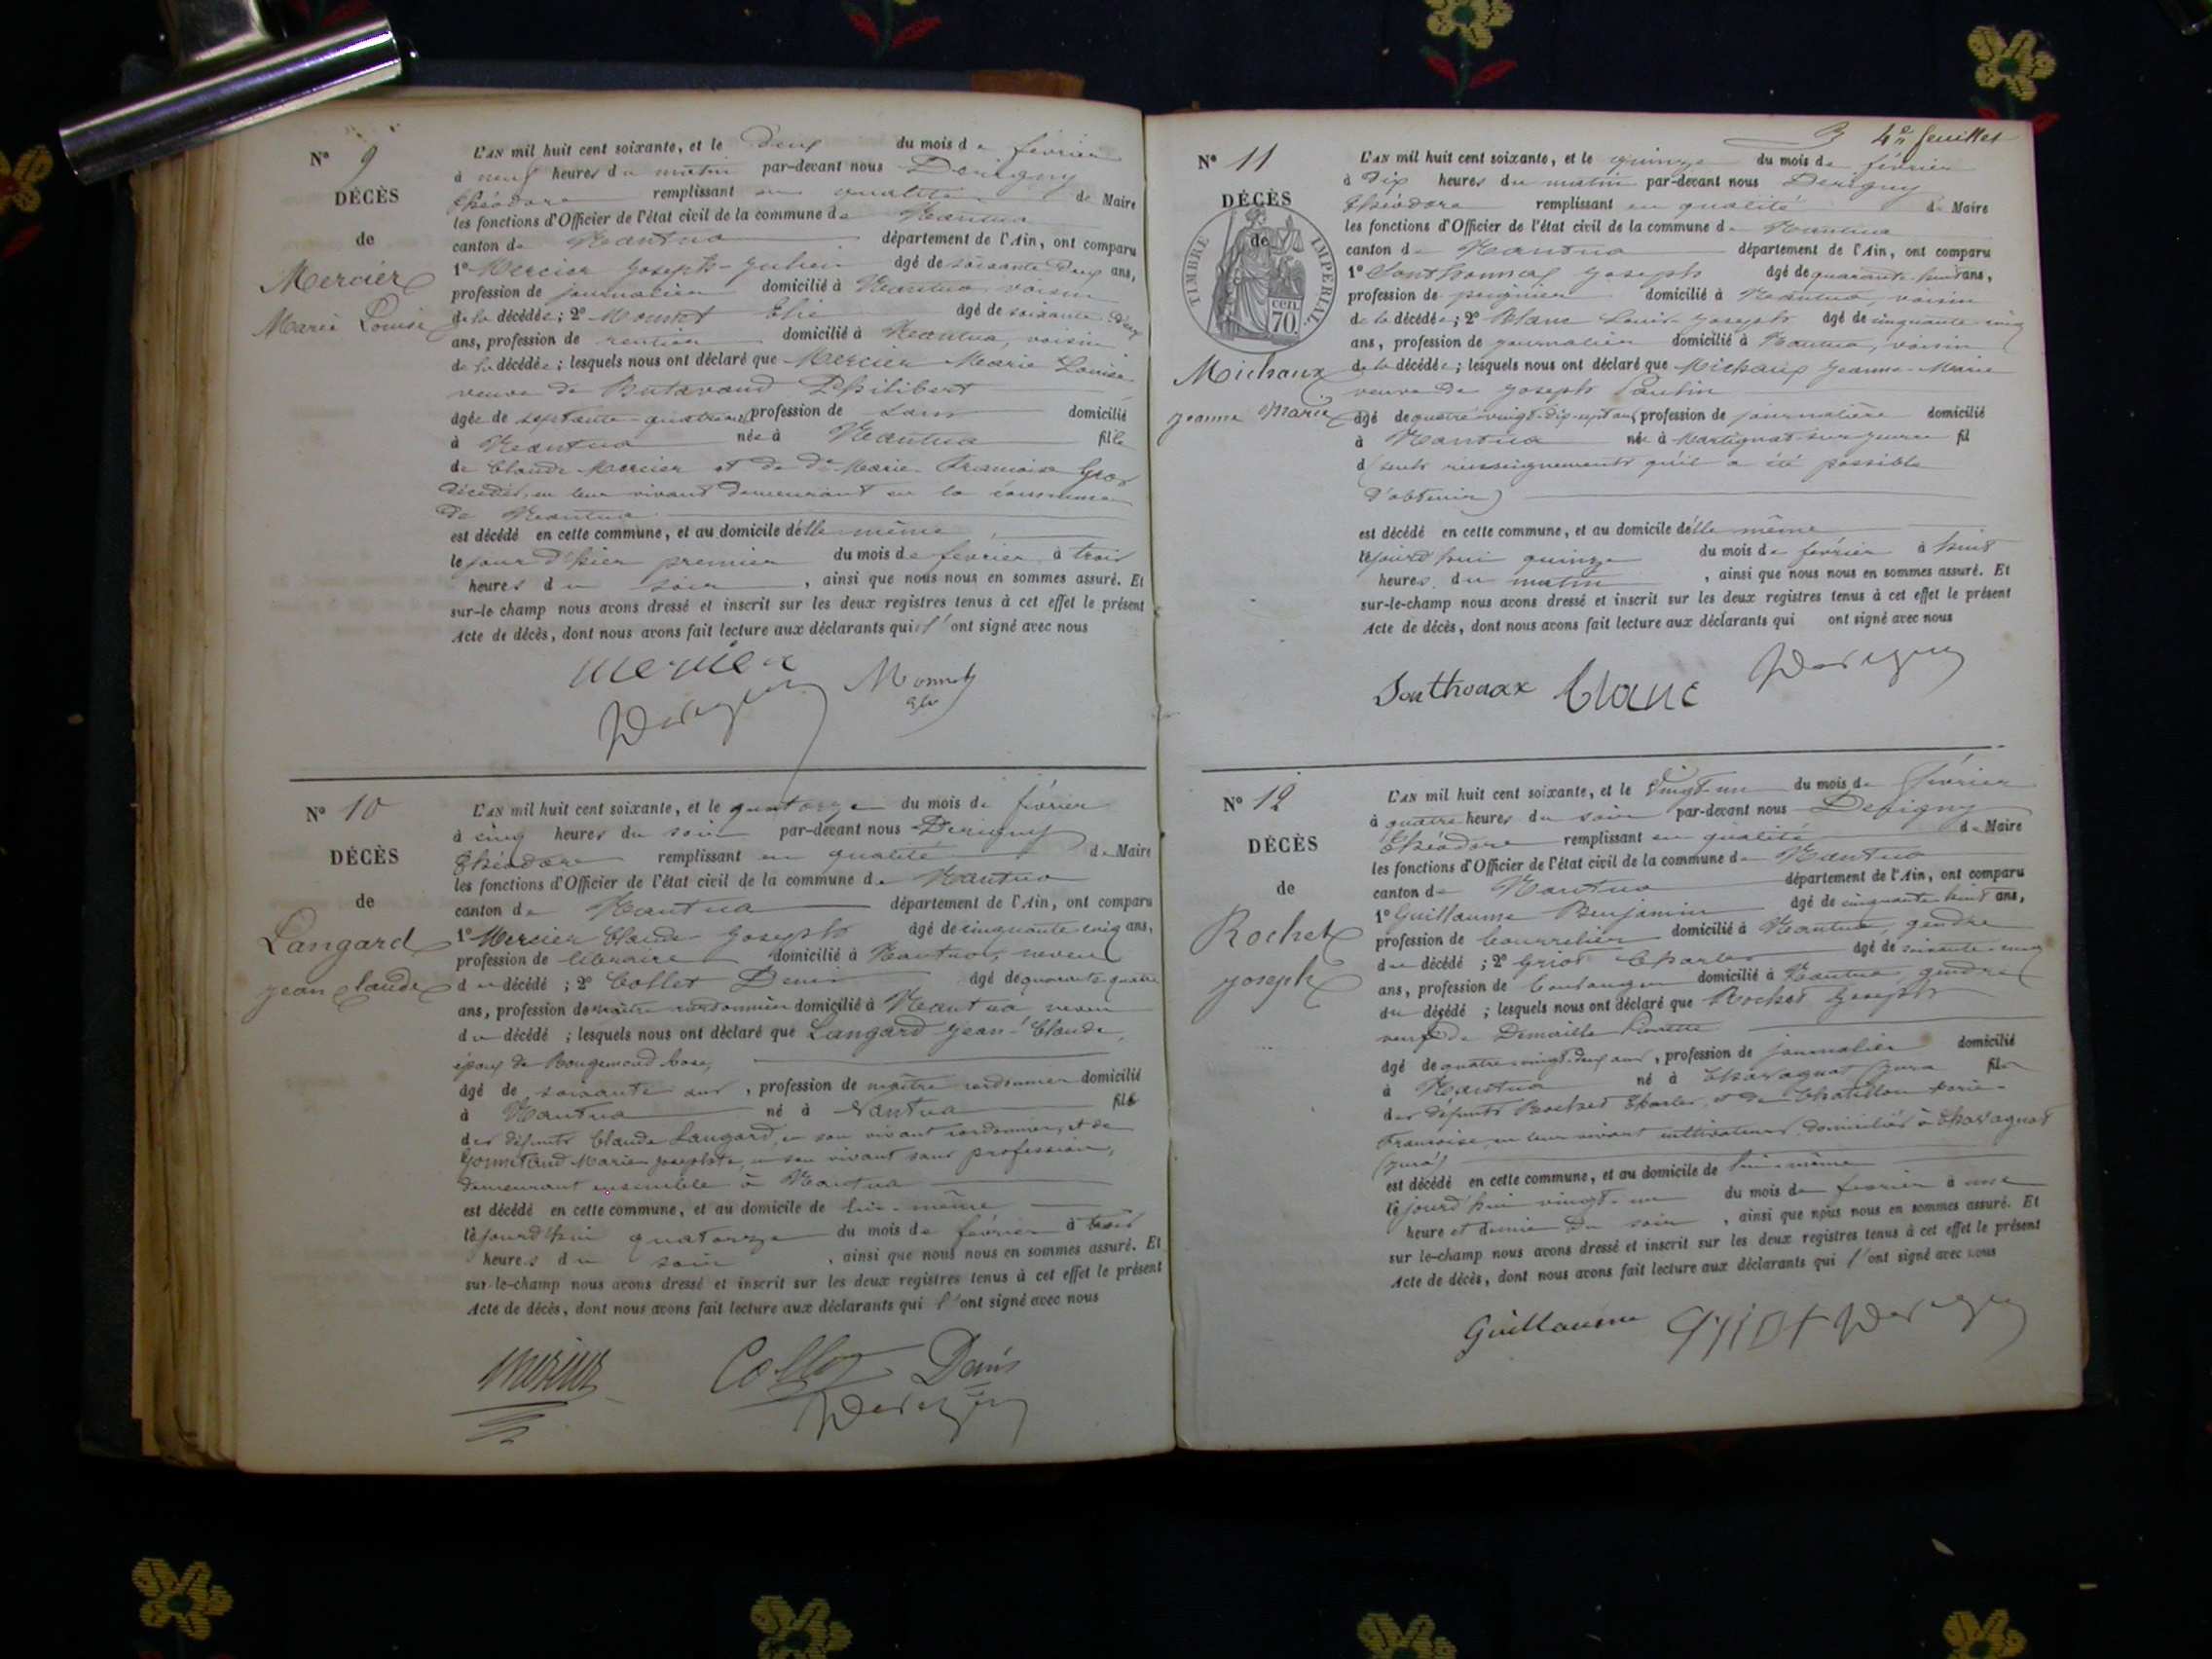 N° 9
DÉCÈS
de
Mercier
Marie Louise
L'AN mil huit cent soixante, et le deux du mois de février
à neuf heures du matin par-devant nous Derigny
Théodore remplissant en qualité de Maire
les fonctions d'Officier de l'état civil de la commune de Nantua
canton de Nantua département de l'Ain, ont comparu
1° Mercier Joseph-Julien âgé de soixante deux ans,
profession de journalier domicilié à Nantua voisin
de la décédée; 2° Monnet Elie âgé de soixante deux
ans, profession de rentier domicilié à Nantua, voisin
de la décédée; lesquels nous ont déclaré que Mercier Marie Louise
veuve de Butavand Philibert
âgée de septante-quatre ans, profession de sans domicilié
à Nantua née à Nantua fille
de Claude Mercier et de De Marie Francoise Gros
décédés, en leur vivant demeurant en la commune
de Nantua
est décédé en cette commune, et au domicile d'elle même
le jour d'hier premier du mois de fevrier à trois
heures du soir, ainsi que nous nous en sommes assuré. Et
sur-le champ nous avons dressé et inscrit sur les deux registres tenus à cet effet le présent
Acte de décès, dont nous avons fait lecture aux déclarants qui l'ont signé avec nous
Mercier Monnet
Derigny
N° 10
DÉCÈS
de
Langard
jean claude
L'AN mil huit cent soixante, et le quatorze du mois de février
à cinq heures du soir par-devant nous Derigny
Théodore remplissant en qualité de Maire
les fonctions d'Officier de l'état civil de la commune de Nantua
canton de Nantua département de l'Ain, ont comparu
1° Mercier Claude Joseph âgé de cinquante cinq ans,
profession de libraire domicilié à Nantua, neveu
du décédé; 2° Collet Denis âgé de quarante quatre
ans, profession de maître cordonnier domicilié à Nantua neveu
du décédé; lesquels nous ont déclaré que Langard Jean-Claude,
époux de Rougemond Rose,
âgé de soixante ans, profession de maître cordonnier domicilié
à Nantua né à Nantua fils
des défunts Claude Langard, en son vivant cordonnier, et de
Marie Josephte, en son vivant sans profession,
demeurant ensemble à Nantua
est décédé en cette commune, et au domicile de lui-même
le jourd'hui quatorze du mois de février à trois
heures du soir, ainsi que nous nous en sommes assuré. Et
sur-le-champ nous avons dressé et inscrit sur les deux registres tenus à cet effet le présent
Acte de décès, dont nous avons fait lecture aux déclarants qui l'ont signé avec nous
Mercier Collet Denis
Derigny
4e feuillet
N° 11
DÉCÈS
de
TIMBRE IMPÉRIAL
70 cen.
Michaux
jeanne Marie
L'AN mil huit cent soixante, et le quinze du mois de février
à dix heures du matin par-devant nous Derigny
Théodore remplissant en qualité de Maire
les fonctions d'Officier de l'état civil de la commune de Nantua
canton de Nantua département de l'Ain, ont comparu
1° Sonthonnax Joseph âgé de quarante-huit ans,
profession de peignier domicilié à Nantua, voisin
de la décédée; 2° Blanc Louis Joseph âgé de cinquante cinq
ans, profession de journalier domicilié à Nantua, voisin
de la décédée; lesquels nous ont déclaré que Michaux Jeanne-Marie
veuve de Joseph Paulin
âgé de quatre vingt-dix-sept ans, profession de journalière domicilié
à Nantua née à Martignat fil
d (seuls renseignements qu'il a été possible
d'obtenir)
est décédé en cette commune, et au domicile d'elle même
le jourd'hui quinze du mois de février à huit
heures du matin, ainsi que nous nous en sommes assuré. Et
sur-le-champ nous avons dressé et inscrit sur les deux registres tenus à cet effet le présent
Acte de décès, dont nous avons fait lecture aux déclarants qui ont signé avec nous
Sonthonax Blanc Derigny
N° 12
DÉCÈS
de
Rochet
joseph
L'AN mil huit cent soixante, et le vingt-un du mois de février
à quatre heures du soir par-devant nous Derigny
Théodore remplissant en qualité de Maire
les fonctions d'Officier de l'état civil de la commune de Nantua
canton de Nantua département de l'Ain, ont comparu
1° Guillaume Benjamin âgé de cinquante huit ans,
profession de bourrelier domicilié à Nantua, gendre
du décédé; 2° Griot Charles âgé de soixante-cinq
ans, profession de boulanger domicilié à Nantua, gendre
du décédé; lesquels nous ont déclaré que Rochet Joseph
veuf de Demaille Pierrette
âgé de quatre vingt-deux ans, profession de journalier domicilié
à Nantua né à Charagnat Jura fils
des défunts Rochet Charles, et de Chatillon Marie-
Francoise, en leur vivant cultivateurs domiciliés à Charagnat
(Jura)
est décédé en cette commune, et au domicile de lui-même
le jourd'hui vingt-un du mois de fevrier à une
heure et demie du soir, ainsi que nous nous en sommes assuré. Et
sur le-champ nous avons dressé et inscrit sur les deux registres tenus à cet effet le présent
Acte de décès, dont nous avons fait lecture aux déclarants qui l'ont signé avec nous
Guillaume Griot Derigny